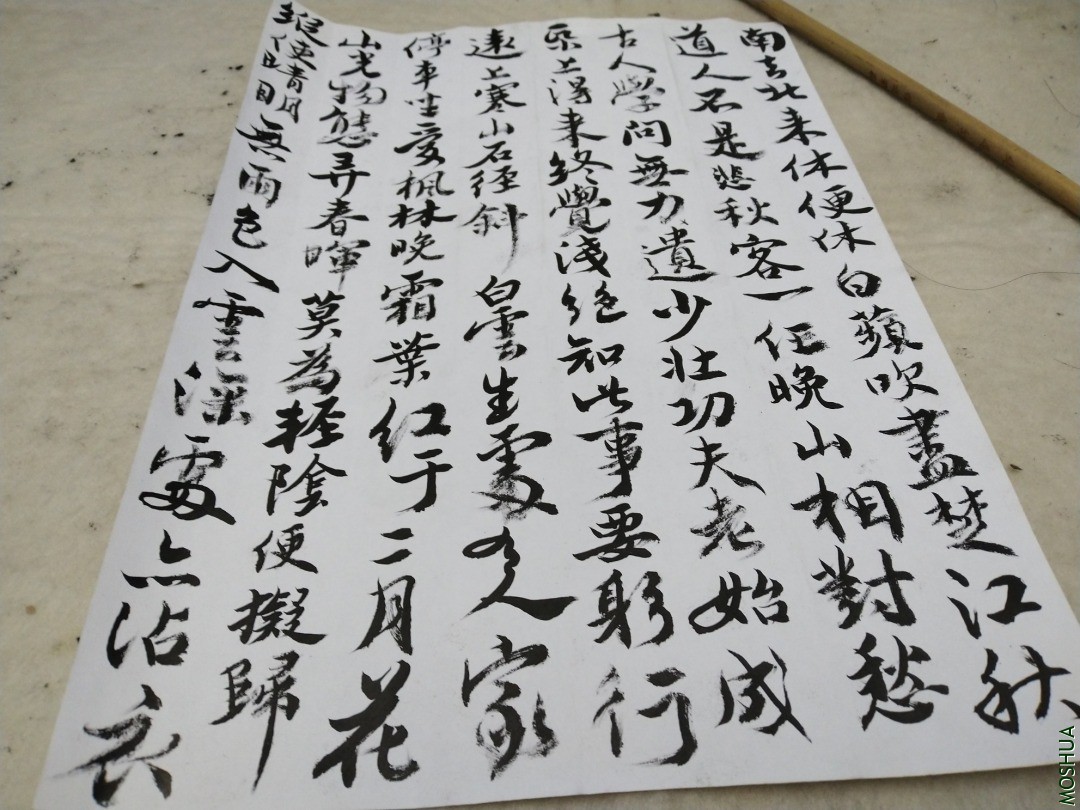 南去北来休便休白蘋吹盡楚江秋
道人不是悲秋客一任晚山相對愁
古人學問無力遺少壯功夫老始成
紙上得来終覺淺絕知此事要躬行
遠上寒山石徑斜白雲生處有人家
停車坐愛楓林晚霜葉红于二月花
山光物態弄春暉莫為輕陰便擬歸
縱使晴明無雨色入雲深處亦沾衣
MOSHUA